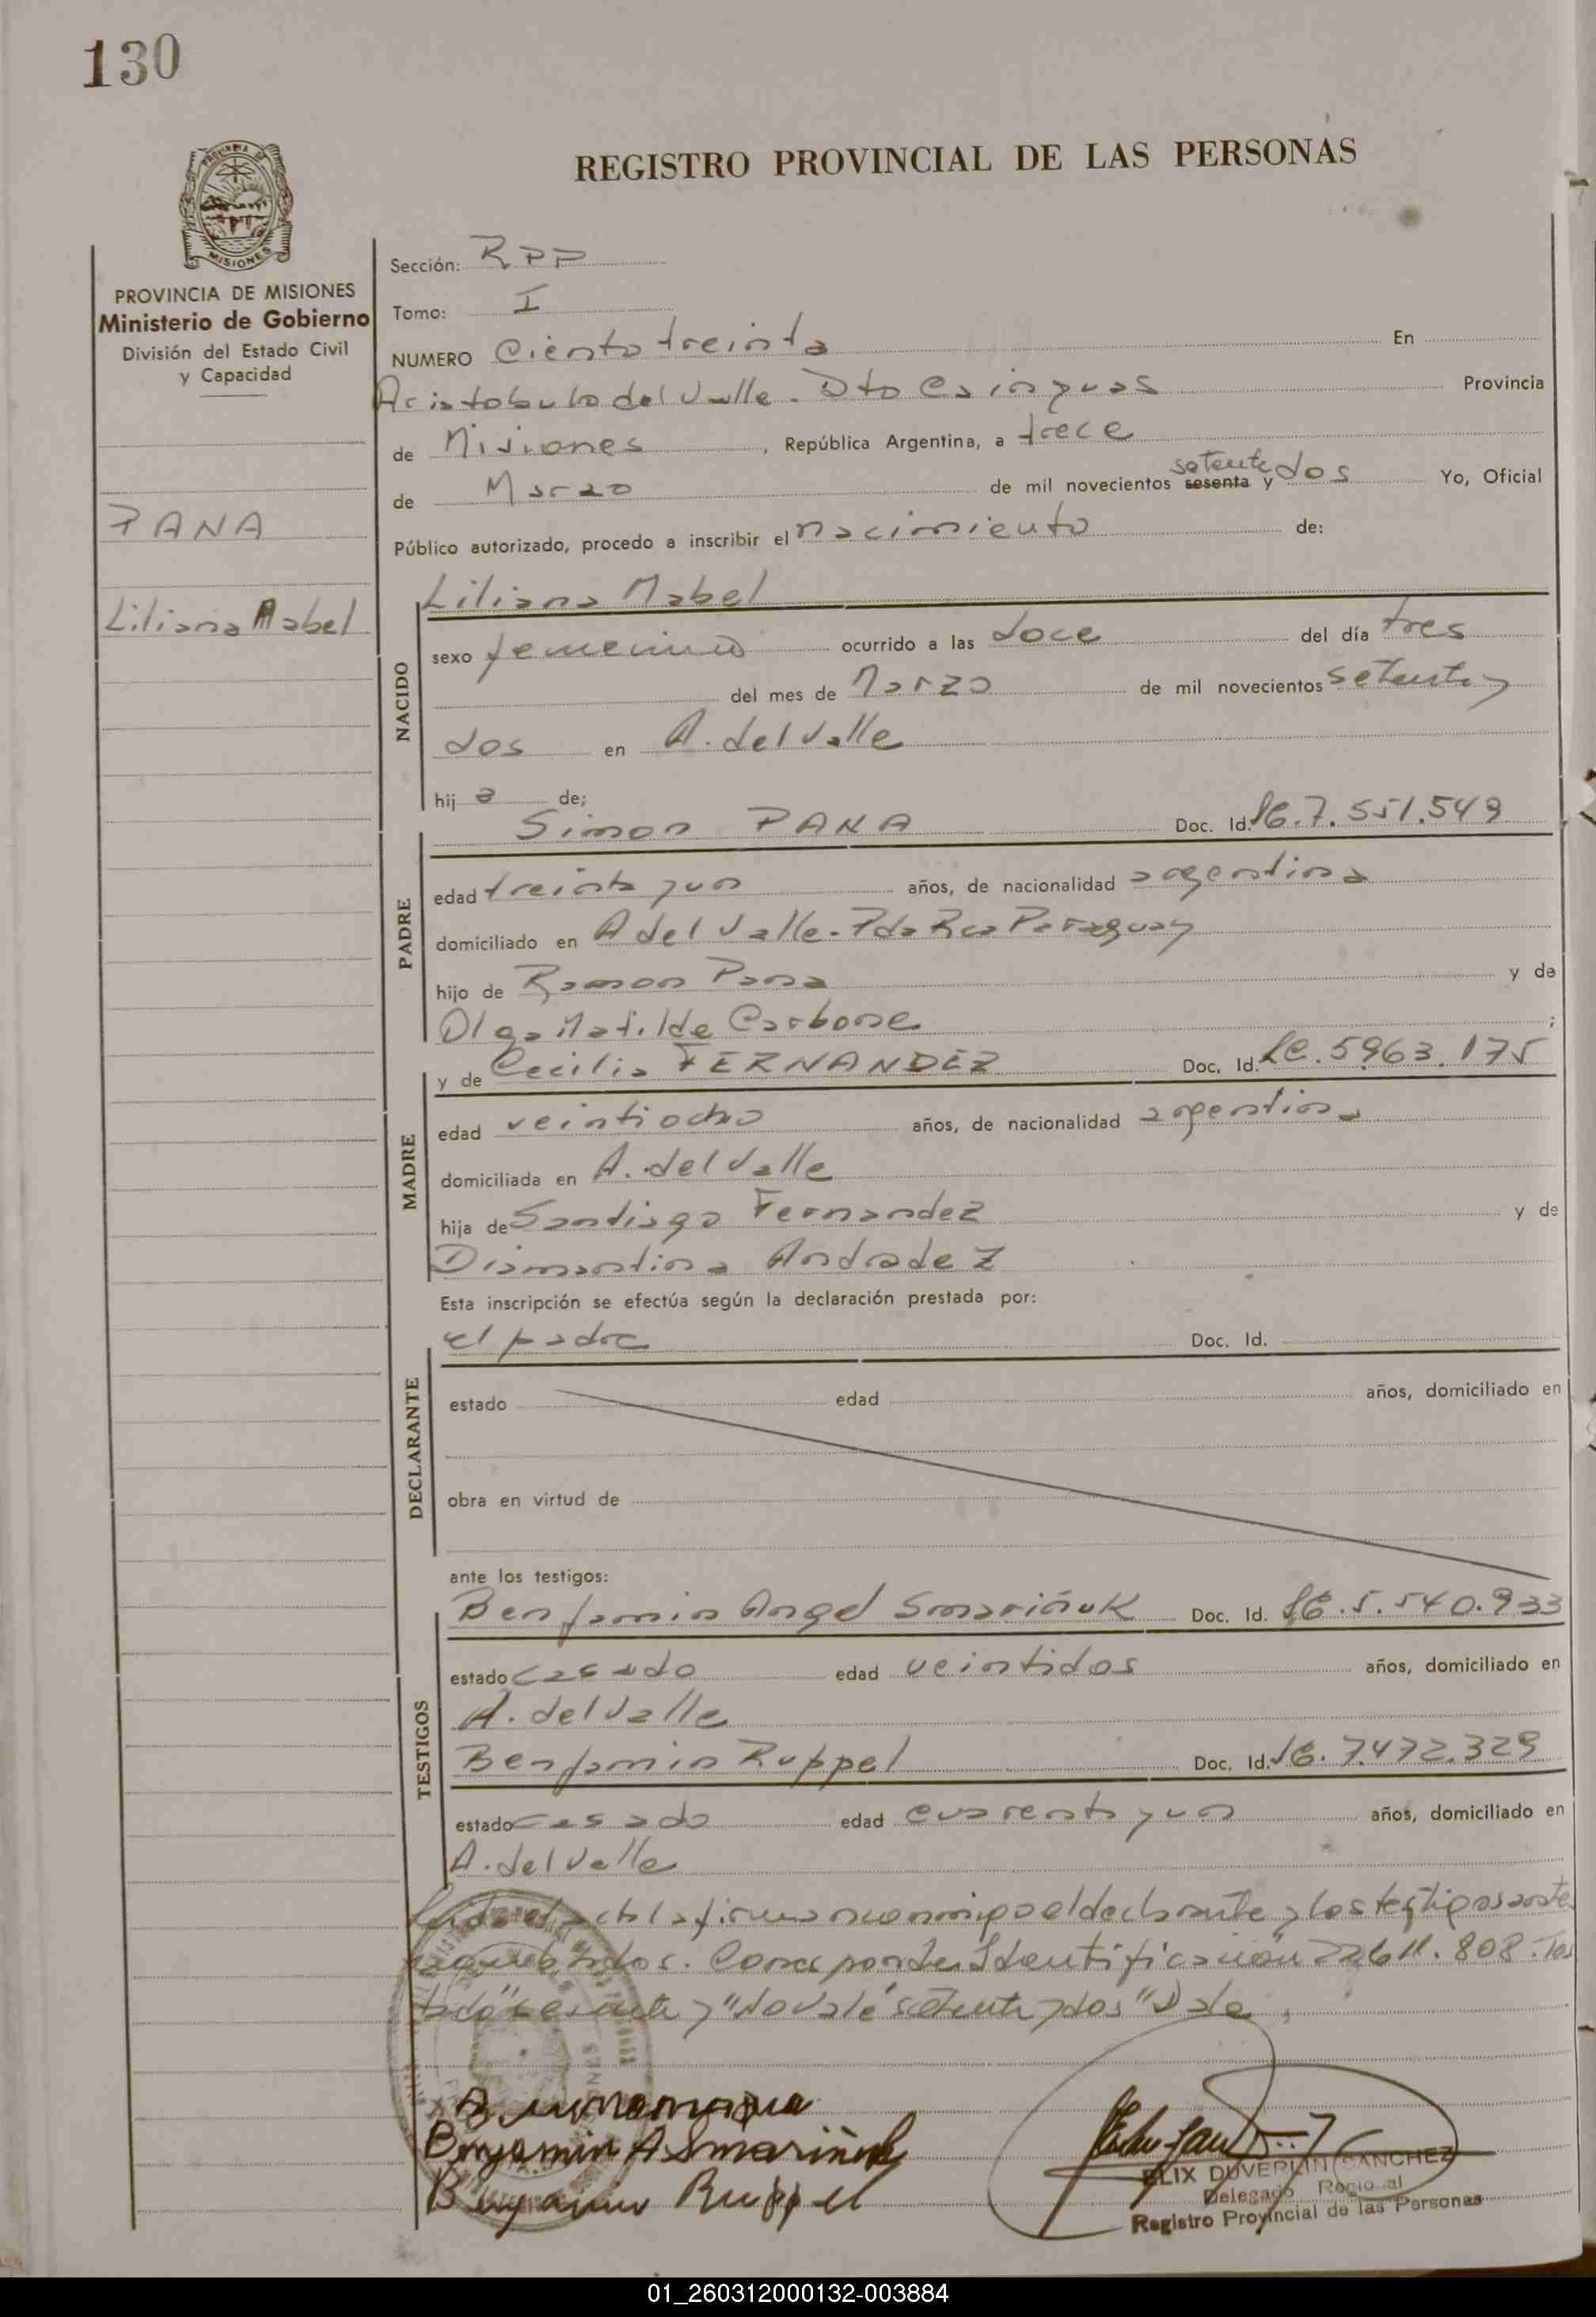 130
REGISTRO PROVINCIAL DE LAS PERSONAS
PROVINCIA DE MISIONES
Ministerio de Gobierno
División del Estado Civil
y Capacidad
PANA
Liliana Mabel
Sección: RPP
Tomo: I
NUMERO Ciento treinta En
Aristobulo del Valle. Dto Cainguas Provincia
de Misiones, República Argentina, a trece
de Marzo de mil novecientos sesenta y setenta y dos Yo, Oficial
Público autorizado, procedo a inscribir el nacimiento de:
NACIDO
Liliana Mabel
sexo femenino ocurrido a las doce del día tres
del mes de Marzo de mil novecientos setenta y
dos en A. del Valle
hij a de;
PADRE
Simon PANA Doc. Id. 7.551.549
edad treinta y un años, de nacionalidad argentina
domiciliado en A del Valle - Pda Rca Paraguay
hijo de Ramon Pana y de
Olga Matilde Carbone ;
MADRE
y de Cecilia FERNANDEZ Doc. Id. LC. 5963.175
edad veintiocho años, de nacionalidad argentina
domiciliada en A. del Valle
hija de Santiago Fernandez y de
Diamantina Andradez
Esta inscripción se efectúa según la declaración prestada por:
DECLARANTE
el padre Doc. Id.
estado edad años, domiciliado en
obra en virtud de
ante los testigos:
TESTIGOS
Benjamin Angel Smariñuk Doc. Id. 5.540.933
estado casado edad veintidos años, domiciliado en
A. del Valle
Benjamin Ruppel Doc. Id. 7.472.329
estado casado edad cuarenta y un años, domiciliado en
A. del Valle
Leida el acta la firman conmigo el declarante y los testigos ante
nombrados. Corresponde Identificacion 22611.808. Tes
tado "sesenta y" No vale "setenta y dos" Vale
Benjamin A Smariñuk
Benjamin Ruppel
ELIX DUVERLIN SANCHEZ
Delegado Regional
Registro Provincial de las Personas
01_260312000132-003884